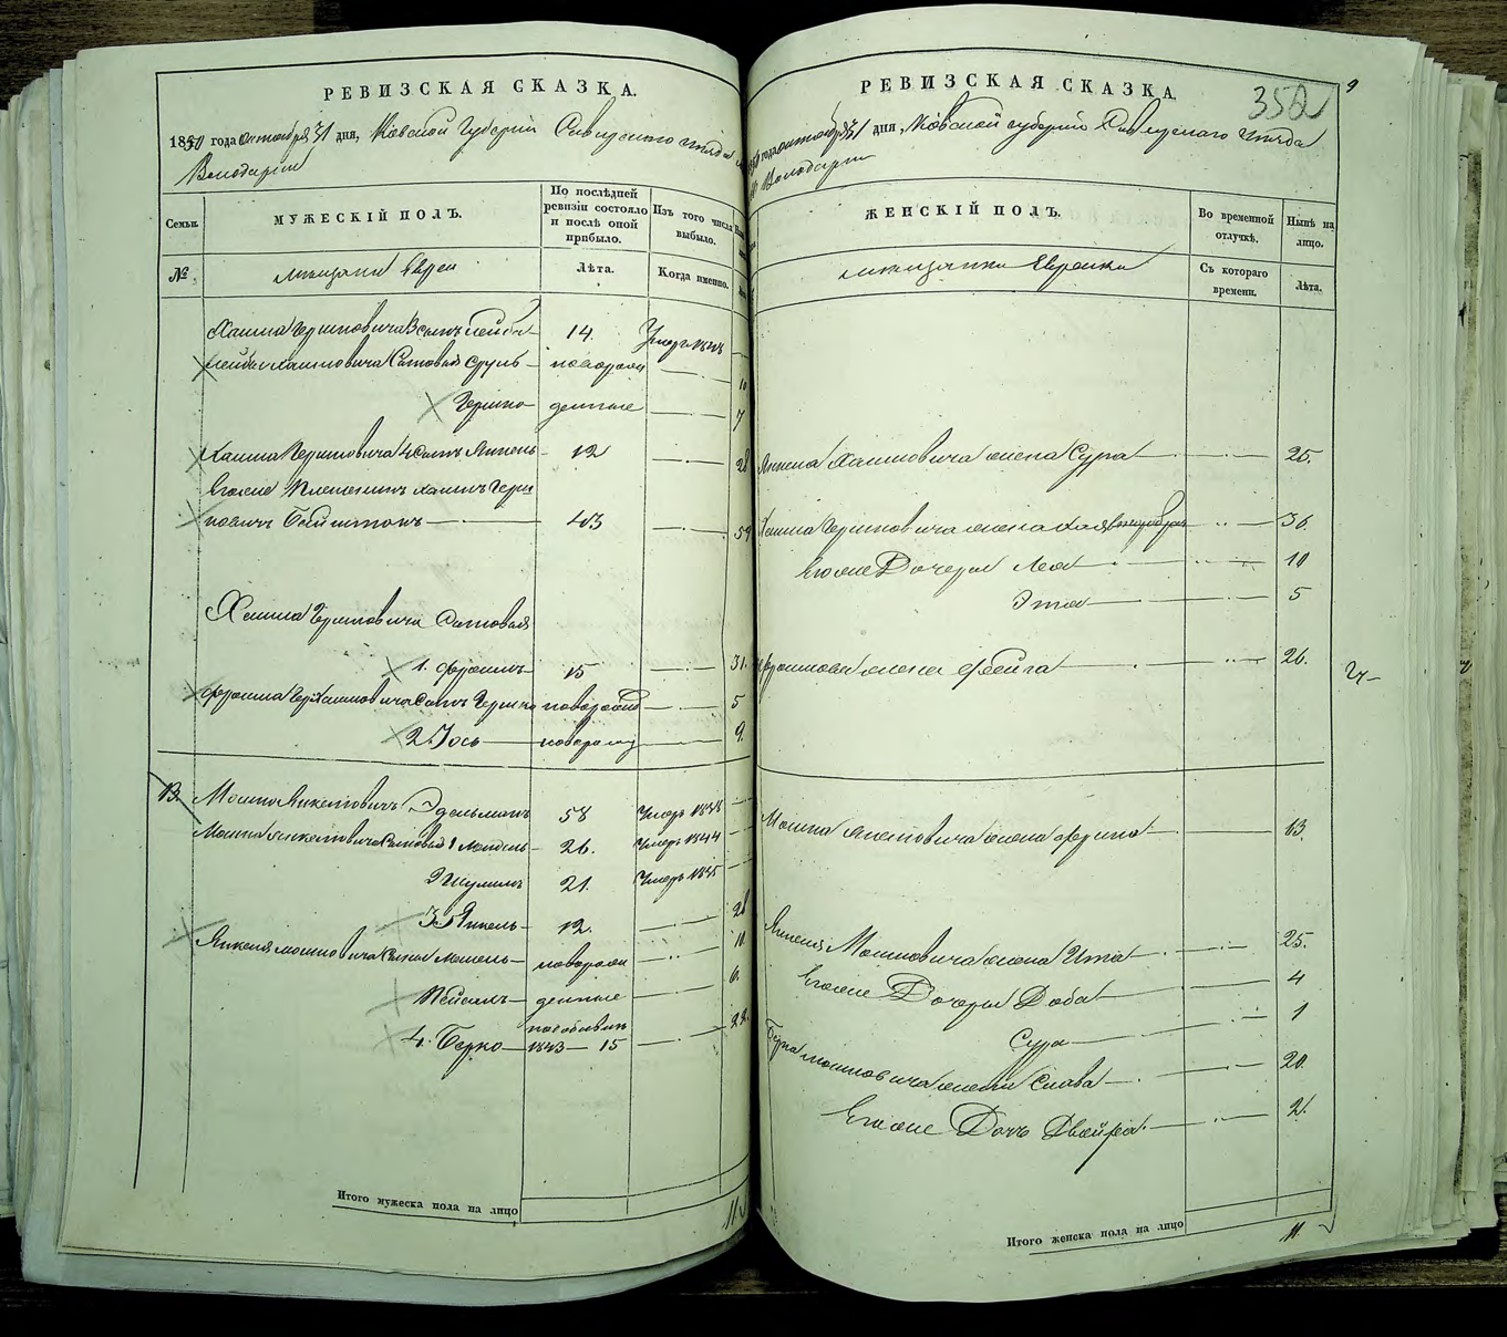 РЕВИЗСКАЯ СКАЗКА.
1850 года октября 31 дня, Киевской Губернии Сквирского уезда
Володарки
Семьи.
МУЖЕСКІЙ ПОЛЪ.
По послѣдней ревизіи состояло и послѣ оной прибыло.
Изъ того числа выбыло.
№
мещане евреи
Лѣта.
Когда именно.
Хаима Гершковича 3 сынъ Лейба 14. Умеръ 1848
Лейбы Хаимовича Сыновья Сруль новорож 10
Гершко денные 7
Хаима Гершковича 4 Сынъ Янкель 12 28
Его же Племянникъ Хаимъ Герш
ковичъ 43 59
Хаима Гершковича Сыновья
1. Фроимъ 15 31.
Фроима Хаимовича Сынъ Гершко новорожд 5
2. Іось новорожд 9.
13. Мошко Янкелевичъ Эдельманъ 58 Умеръ 1848
Мошка Янкелевича Сыновья 1 Мендель 26. Умеръ 1844
2 Шулимъ 21. Умеръ 1835
3. Янкель 12. 28
Янкеля Мошковича Сыновья новорож 10.
Пейсахъ денные 6.
4. Берко 1843 15 22.
Итого мужеска пола на лицо 11
РЕВИЗСКАЯ СКАЗКА.
352
9
года октября 31 дня, Киевской губернии Сквирского уезда
Володарки
ЖЕНСКІЙ ПОЛЪ.
Во временной отлучкѣ.
Нынѣ на лицо.
мещанки Еврейки
Съ котораго времени.
Лѣта.
Янкеля Хаимовича жена Сура 25.
Хаима Гершковича жена Хая 36.
Его же Дочери Лея 10
Эта 5
Фроимова жена Фейга 26.
Мошка Янкелевича жена Фрима 63.
Янкеля Мошковича жена Ита 25.
Его же Дочери Доба 4
Сура 1
Берка Мошковича жена Слава 20.
Его же Дочь Двейра 2.
Итого женска пола на лицо 11.